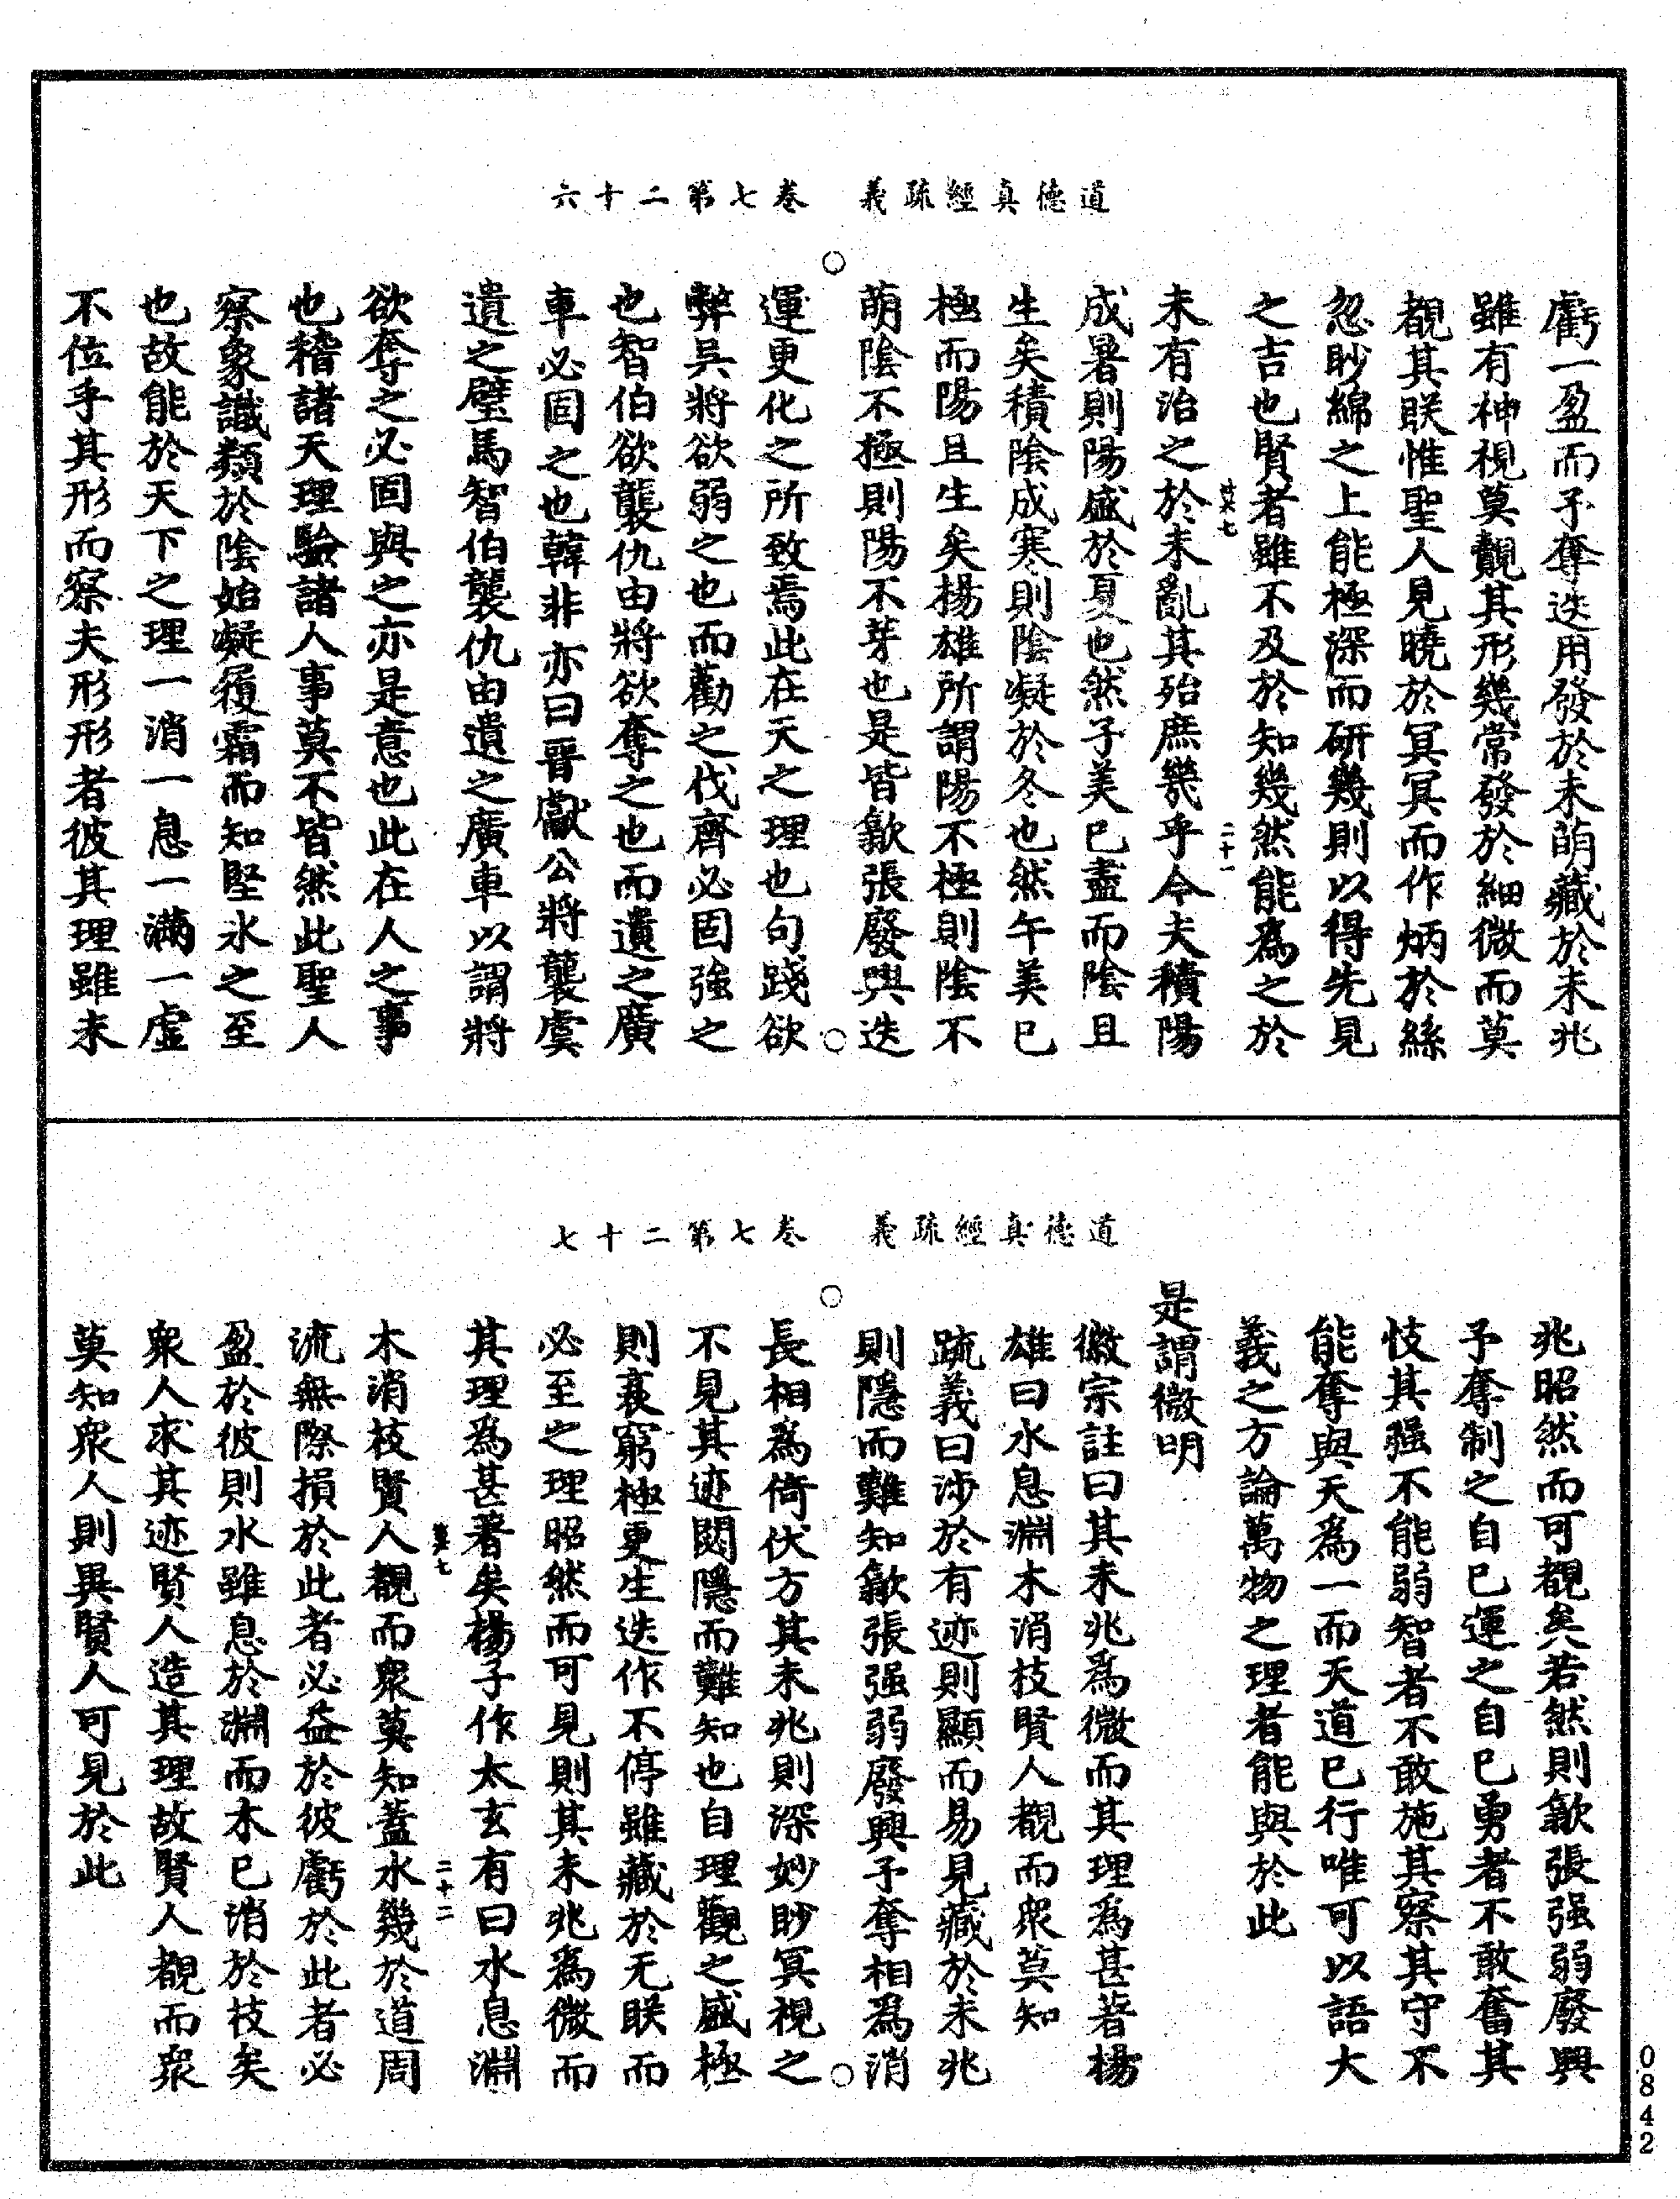 道德真經疏義　卷七第二十六
虧一盈而予奪迭用發於未萌藏於未兆
雖有神視莫覿其形幾常發於細微而莫
覩其眹惟聖人見曉於冥冥而作炳於絲
忽眇綿之上能極深而研幾則以得先見
之吉也賢者雖不及於知幾然能為之於
未有治之於未亂其殆庶幾乎今夫積陽
成暑則陽盛於夏也然子美已盡而陰且
生矣積陰成寒則陰凝於冬也然午美已
極而陽且生矣揚雄所謂陽不極則陰不
萌陰不極則陽不芽也是皆歙張廢興迭
運更化之所致焉此在天之理也句踐欲
弊吳將欲弱之也而勸之伐齊必固強之
也智伯欲襲仇由將欲奪之也而遺之廣
車必固之也韓非亦曰晉獻公將襲虞
遺之璧馬智伯襲仇由遺之廣車以謂將
欲奪之必固與之亦是意也此在人之事
也稽諸天理驗諸人事莫不皆然此聖人
察象識類於陰始凝履霜而知堅冰之至
也故能於天下之理一消一息一滿一虛
不位乎其形而察夫形形者彼其理雖未
二十一
道德真經疏義　卷七第二十七
兆昭然而可覩矣若然則歙張强弱廢興
予奪制之自已運之自已勇者不敢奮其
忮其强不能弱智者不敢施其察其守不
能奪與天為一而天道已行唯可以語大
義之方論萬物之理者能與於此
是謂微明
徽宗註曰其未兆為微而其理為甚著揚
雄曰水息淵木消枝賢人覩而眾莫知
疏義曰涉於有迹則顯而易見藏於未兆
則隱而難知歙張强弱廢興予奪相為消
長相為倚伏方其未兆則深妙眇冥視之
不見其迹閟隱而難知也自理觀之盛極
則衰窮極更生迭作不停雖藏於无眹而
必至之理昭然而可見則其未兆為微而
其理為甚著矣揚子作太玄有曰水息淵
木消枝賢人覩而眾莫知蓋水幾於道周
流無際損於此者必益於彼虧於此者必
盈於彼則水雖息於淵而木已消於枝矣
眾人求其迹賢人造其理故賢人覩而眾
莫知眾人則異賢人可見於此
二十二
0842